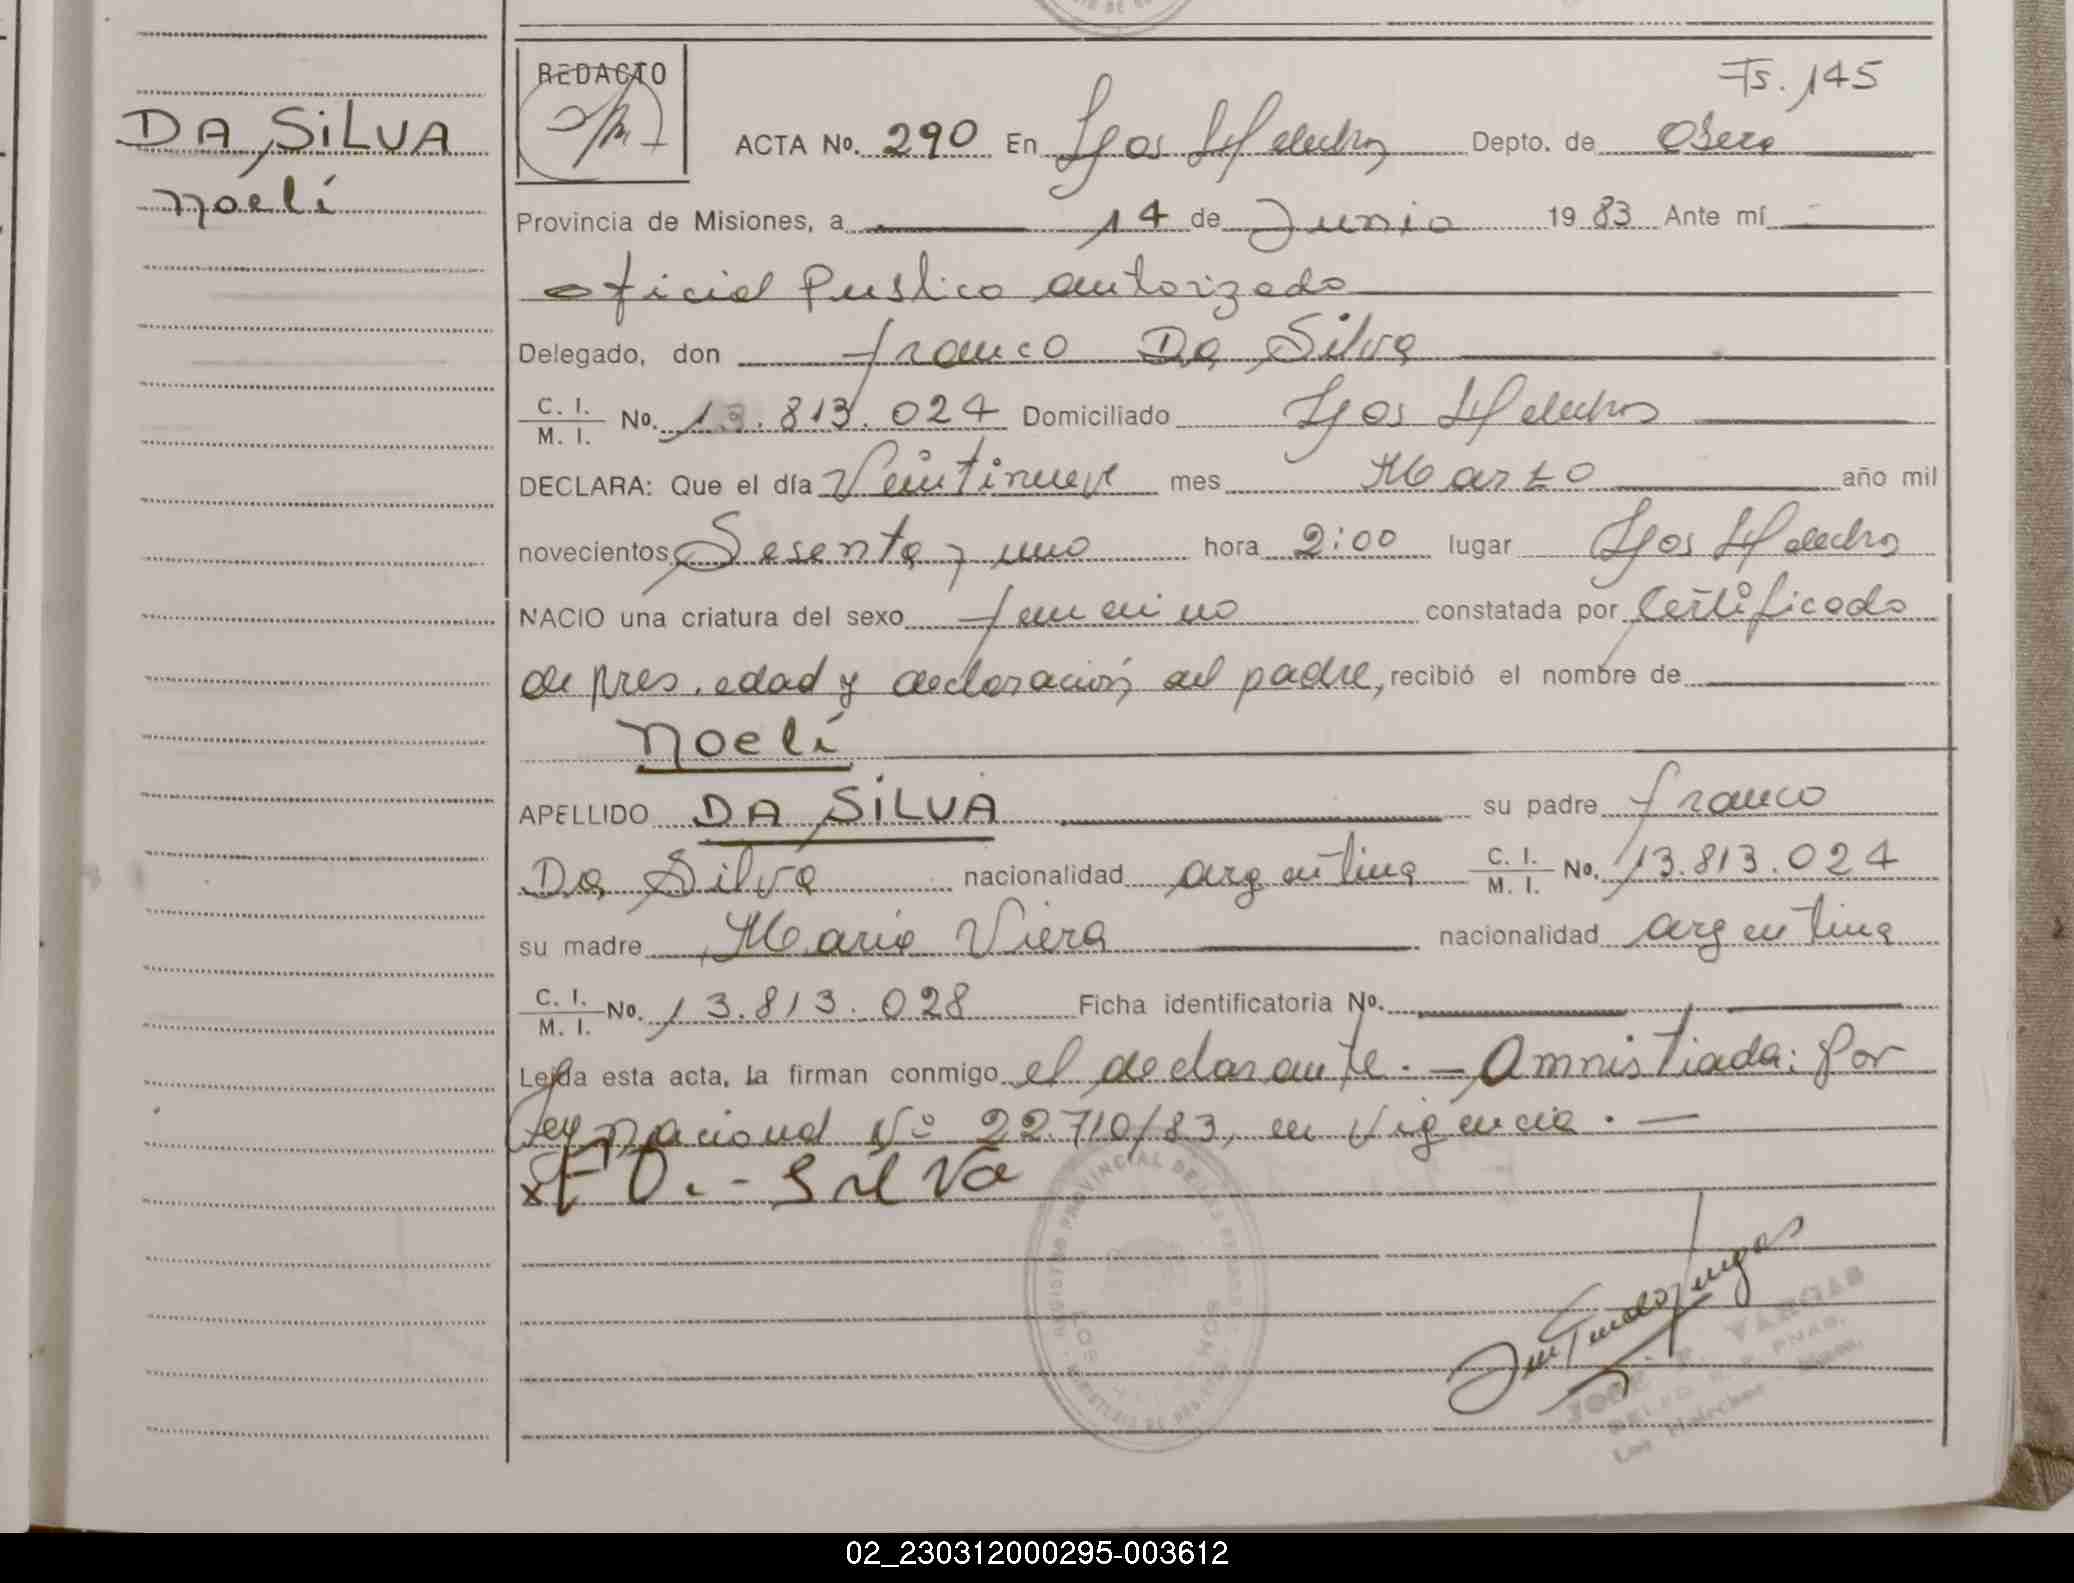 Fs. 145
DA SILVA
Noelí
REDACTO
ACTA No. 290 En Los Helechos Depto. de Oberá
Provincia de Misiones, a 14 de Junio 1983 Ante mí
oficial Publico autorizado
Delegado, don Franco Da Silva
C. I. M. I. No. 13.813.024 Domiciliado Los Helechos
DECLARA: Que el día Veintinueve mes Marzo año mil
novecientos Sesenta y uno hora 2:00 lugar Los Helechos
NACIO una criatura del sexo femenino constatada por Certificado
de pres. edad y declaración del padre, recibió el nombre de
Noelí
APELLIDO DA SILVA su padre Franco
Da Silva nacionalidad argentina C. I. M. I. No. 13.813.024
su madre Maria Viera nacionalidad argentina
C. I. M. I. No. 13.813.028 Ficha identificatoria No.
Leída esta acta, la firman conmigo el declarante. - Amnistiada: Por
Ley nacional Nº 22.710/83, en vigencia. -
x F D. - Silva
REGISTRO PROVINCIAL DE LAS PERSONAS
JOSE VARGAS
Los Helechos - Mnes.
02_230312000295-003612